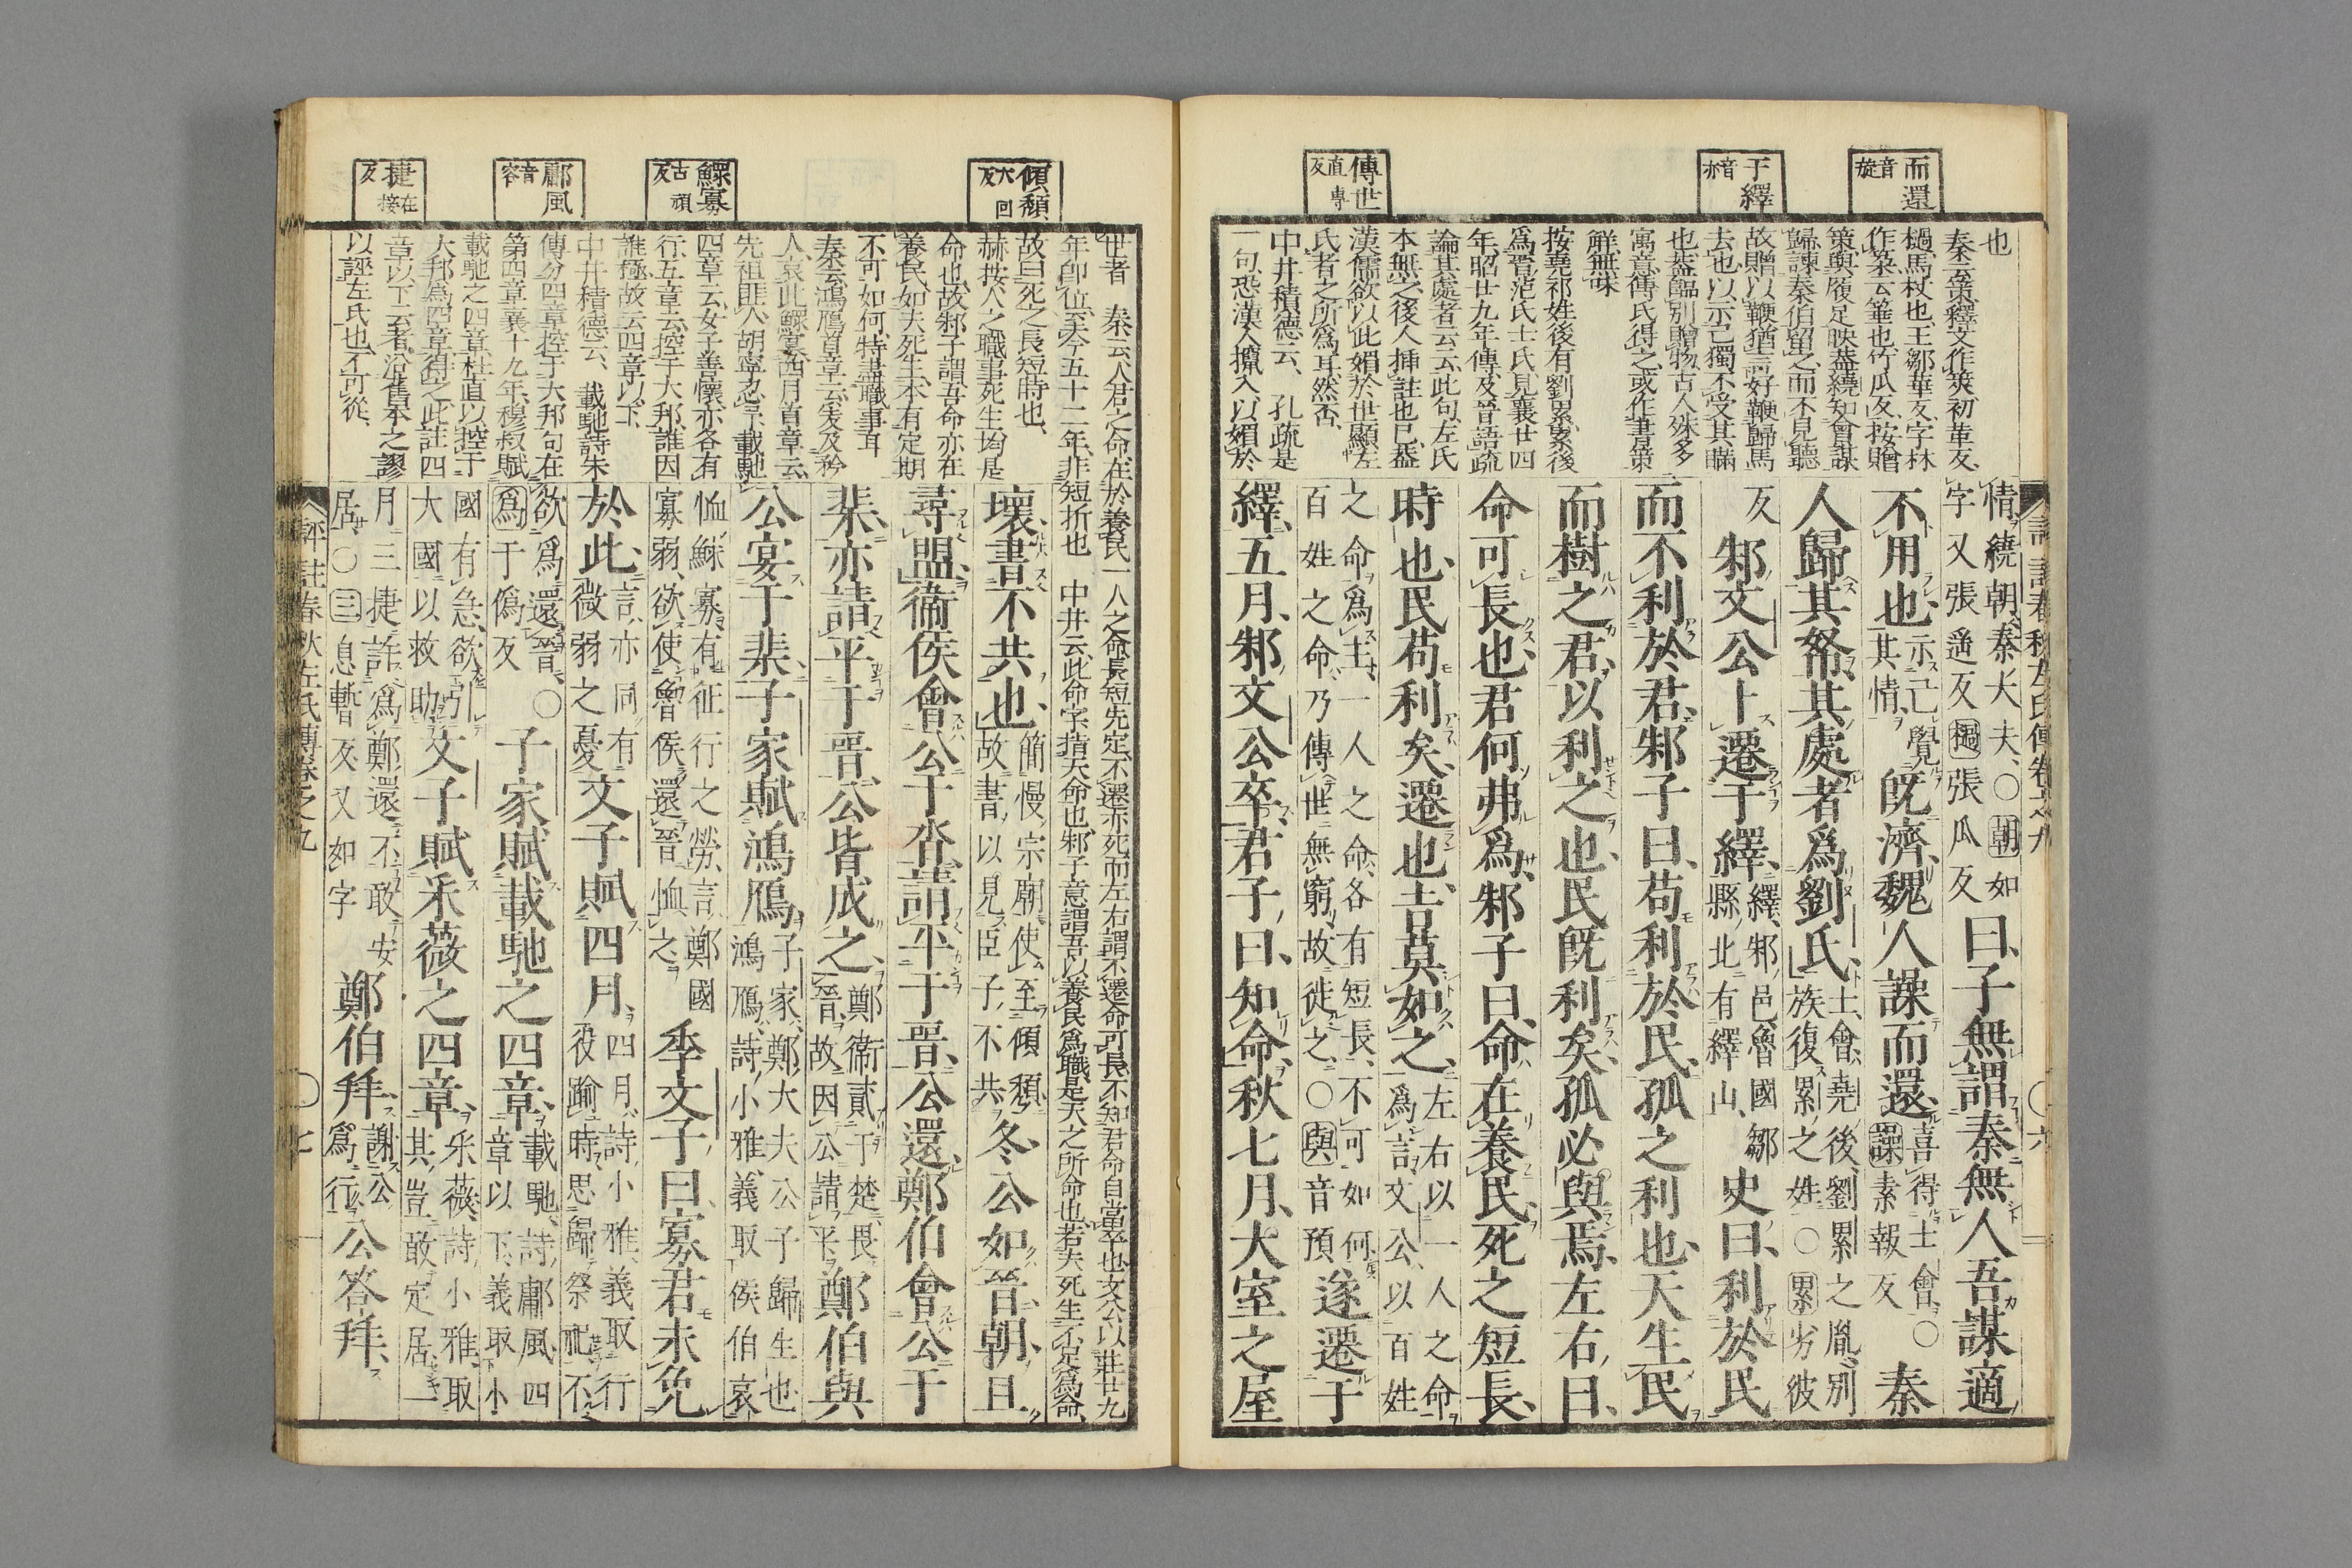 而還
音旋
于繹
音亦
傳世
直專反
也
秦云策釋文作筴初革反
檛馬杖也王鄒華反字林
作䇲云箠也竹瓜反按贈
策與履足映蓋繞知會謀
歸諫秦伯留之而不見聽
故贈以鞭猶言好鞭歸馬
去也以示己獨不受其瞞
也蓋臨別贈物古人殊多
寓意傅氏得之或作書策
解無味
按堯祁姓後有劉累累後
爲晋范氏士氏見襄廿四
年昭廿九年傳及晋語疏
論其處者云云此句左氏
本無之後人揷註也已蓋
漢儒欲以此媚於世顯左
氏者之所爲耳然否
中井積德云 孔疏是
一句恐漢人攛入以媚於
評註春秋左氏傳卷之九
〇六
情繞朝秦大夫〇朝如
字又張遥反檛張瓜反
曰子無謂秦無人吾謀適
不用也
示己覺
其情
旣濟魏人譟而還
喜得士會〇
譟素報反
秦
人歸其帑其處者爲劉氏
士會堯後劉累之胤別
族復累之姓〇累劣彼
反
邾文公卜遷于繹
繹邾邑魯國鄒
縣北有繹山
史曰利於民
而不利於君邾子曰苟利於民孤之利也天生民
而樹之君以利之也民旣利矣孤必與焉左右曰
命可長也君何弗爲邾子曰命在養民死之短長
時也民苟利矣遷也吉莫如之
左右以一人之命
爲言文公以百姓
之命爲主一人之命各有短長不可如何
百姓之命乃傳世無窮故徙之〇與音預
遂遷于
繹五月邾文公卒君子曰知命秋七月大室之屋
傾頽
大回反
鰥寡
古頑反
鄘風
音容
捷
在接反
世者 秦云人君之命在於養民一人之命長短先定不遷亦死而左右謂不遷命可長不知君命自當卒也文公以莊廿九
年卽位至今五十二年非短折也 中井云此命字指天命也邾子意謂吾以養民爲職是天之所命也若夫死生不足爲命
故曰死之長短時也
赫按人之職事死生均是
命也故邾子謂吾命亦在
養民如夫死生本有定期
不可如何特盡職事耳
秦云鴻鴈首章云爰及矜
人哀此鰥寡四月首章云
先祖匪人胡寧忍予載馳
四章云女子善懷亦各有
行五章云控于大邦誰因
誰極故云四章以下
中井積德云 載馳詩朱
傳分四章控于大邦句在
第四章襄十九年穆叔賦
載馳之四章杜直以控于
大邦爲四章得之此註四
章以下云者沿舊本之謬
以誣左氏也不可從
壞書不共也
簡慢宗廟使至傾頽
故書以見臣子不共
冬公如晋朝且
尋盟衞侯會公于沓請平于晋公還鄭伯會公于
棐亦請平于晋公皆成之
鄭衞貳于楚畏
晉故因公請平
鄭伯與
公宴于棐子家賦鴻鴈
子家鄭大夫公子歸生也
鴻鴈詩小雅義取侯伯哀
恤鰥寡有征行之勞言鄭國
寡弱欲使魯侯還晉恤之
季文子曰寡君未免
於此
言亦同有
微弱之憂
文子賦四月
四月詩小雅義取行
役踰時思歸祭祀不
欲爲還晉〇
爲于僞反
子家賦載馳之四章
載馳詩鄘風四
章以下義取小
國有急欲引
大國以救助
文子賦采薇之四章
采薇詩小雅取
其豈敢定居一
月三捷許爲鄭還不敢安
居〇三息暫反又如字
鄭伯拜
謝公
爲行
公答拜
評註春秋左氏傳卷之九
〇七